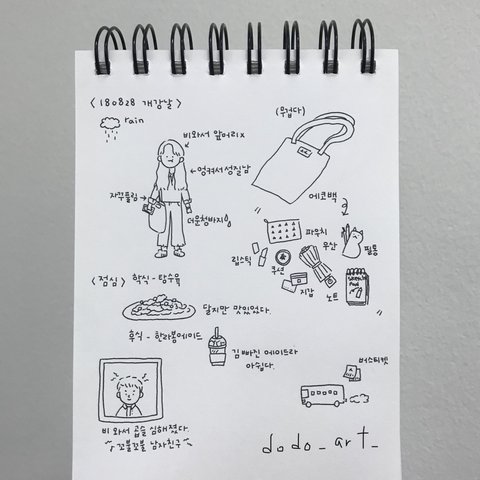 <180828 개강날>
rain
비와서 앞머리x
엉켜서 성질남
자꾸풀림
더운청바지
(무겁다)
에코백
파우치
우산
필통
립스틱
쿠션
지갑
노트
Sketch
Pad
<점심> 학식 - 탕수육
달지만 맛있었다.
후식 - 한라봉에이드
김빠진 에이드라
아쉽다.
비 와서 곱슬 심해졌다.
꼬불꼬불 남자친구
버스티켓
dodo_art_